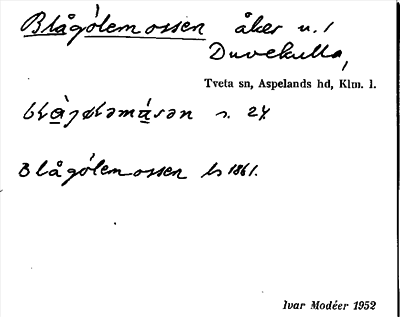 Blågölemossen åker n. 1
Duvekulla,
Tveta sn, Aspelands hd, Klm. l.
s. 24
Blågölemossen ls 1861.
Ivar Modéer 1952